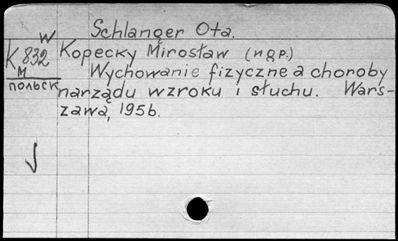 Schlanger Ota.
W
K 832
M
ПОЛЬСК
Kopecky Mirosław (n.q.p.)
Wychowanie fizyczne a choroby
narządu wzroku i słuchu. Wars-
zawa, 1956.